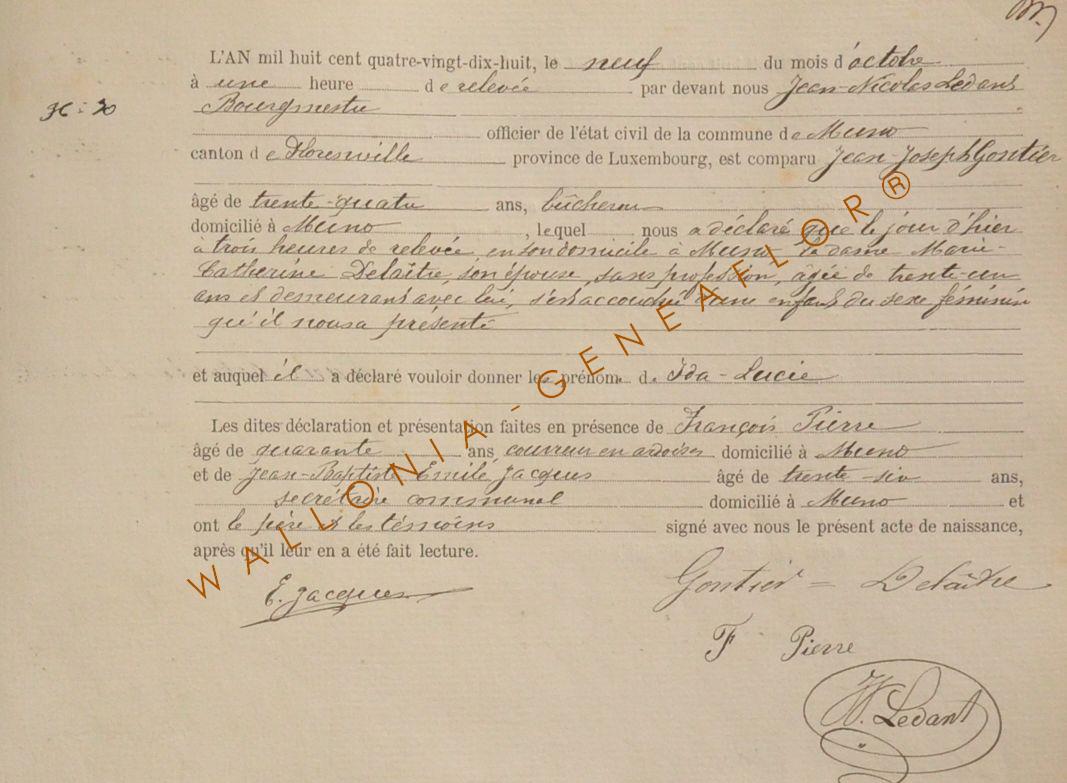 L'AN mil huit cent quatre-vingt-dix-huit, le neuf du mois d'octobre
à une heure de relevée par devant nous Jean-Nicolas Ledant
Bourgmestre
officier de l'état civil de la commune de Muno
canton de Florenville province de Luxembourg, est comparu Jean-Joseph Gontier
âgé de trente-quatre ans, bûcheron
domicilié à Muno, lequel nous a déclaré que le jour d'hier
à trois heures de relevée, en son domicile à Muno la dame Marie-
Catherine Delaître, son épouse, sans profession, âgée de trente-un
ans et demeurant avec lui, s'est accouchée d'une enfant du sexe féminin
qu'il nous a présenté
et auquel il a déclaré vouloir donner les prénom de Ida-Lucie
Les dites déclaration et présentation faites en présence de François Pierre
âgé de quarante ans, couvreur en ardoises domicilié à Muno
et de Jean-Baptiste Emile Jacques âgé de trente-six ans,
secrétaire communal domicilié à Muno et
ont le père et les témoins signé avec nous le présent acte de naissance,
après qu'il leur en a été fait lecture.
E. Jacques
Gontier = Delaître
F Pierre
Ledant
WALLONIA-GENEAFLOR®